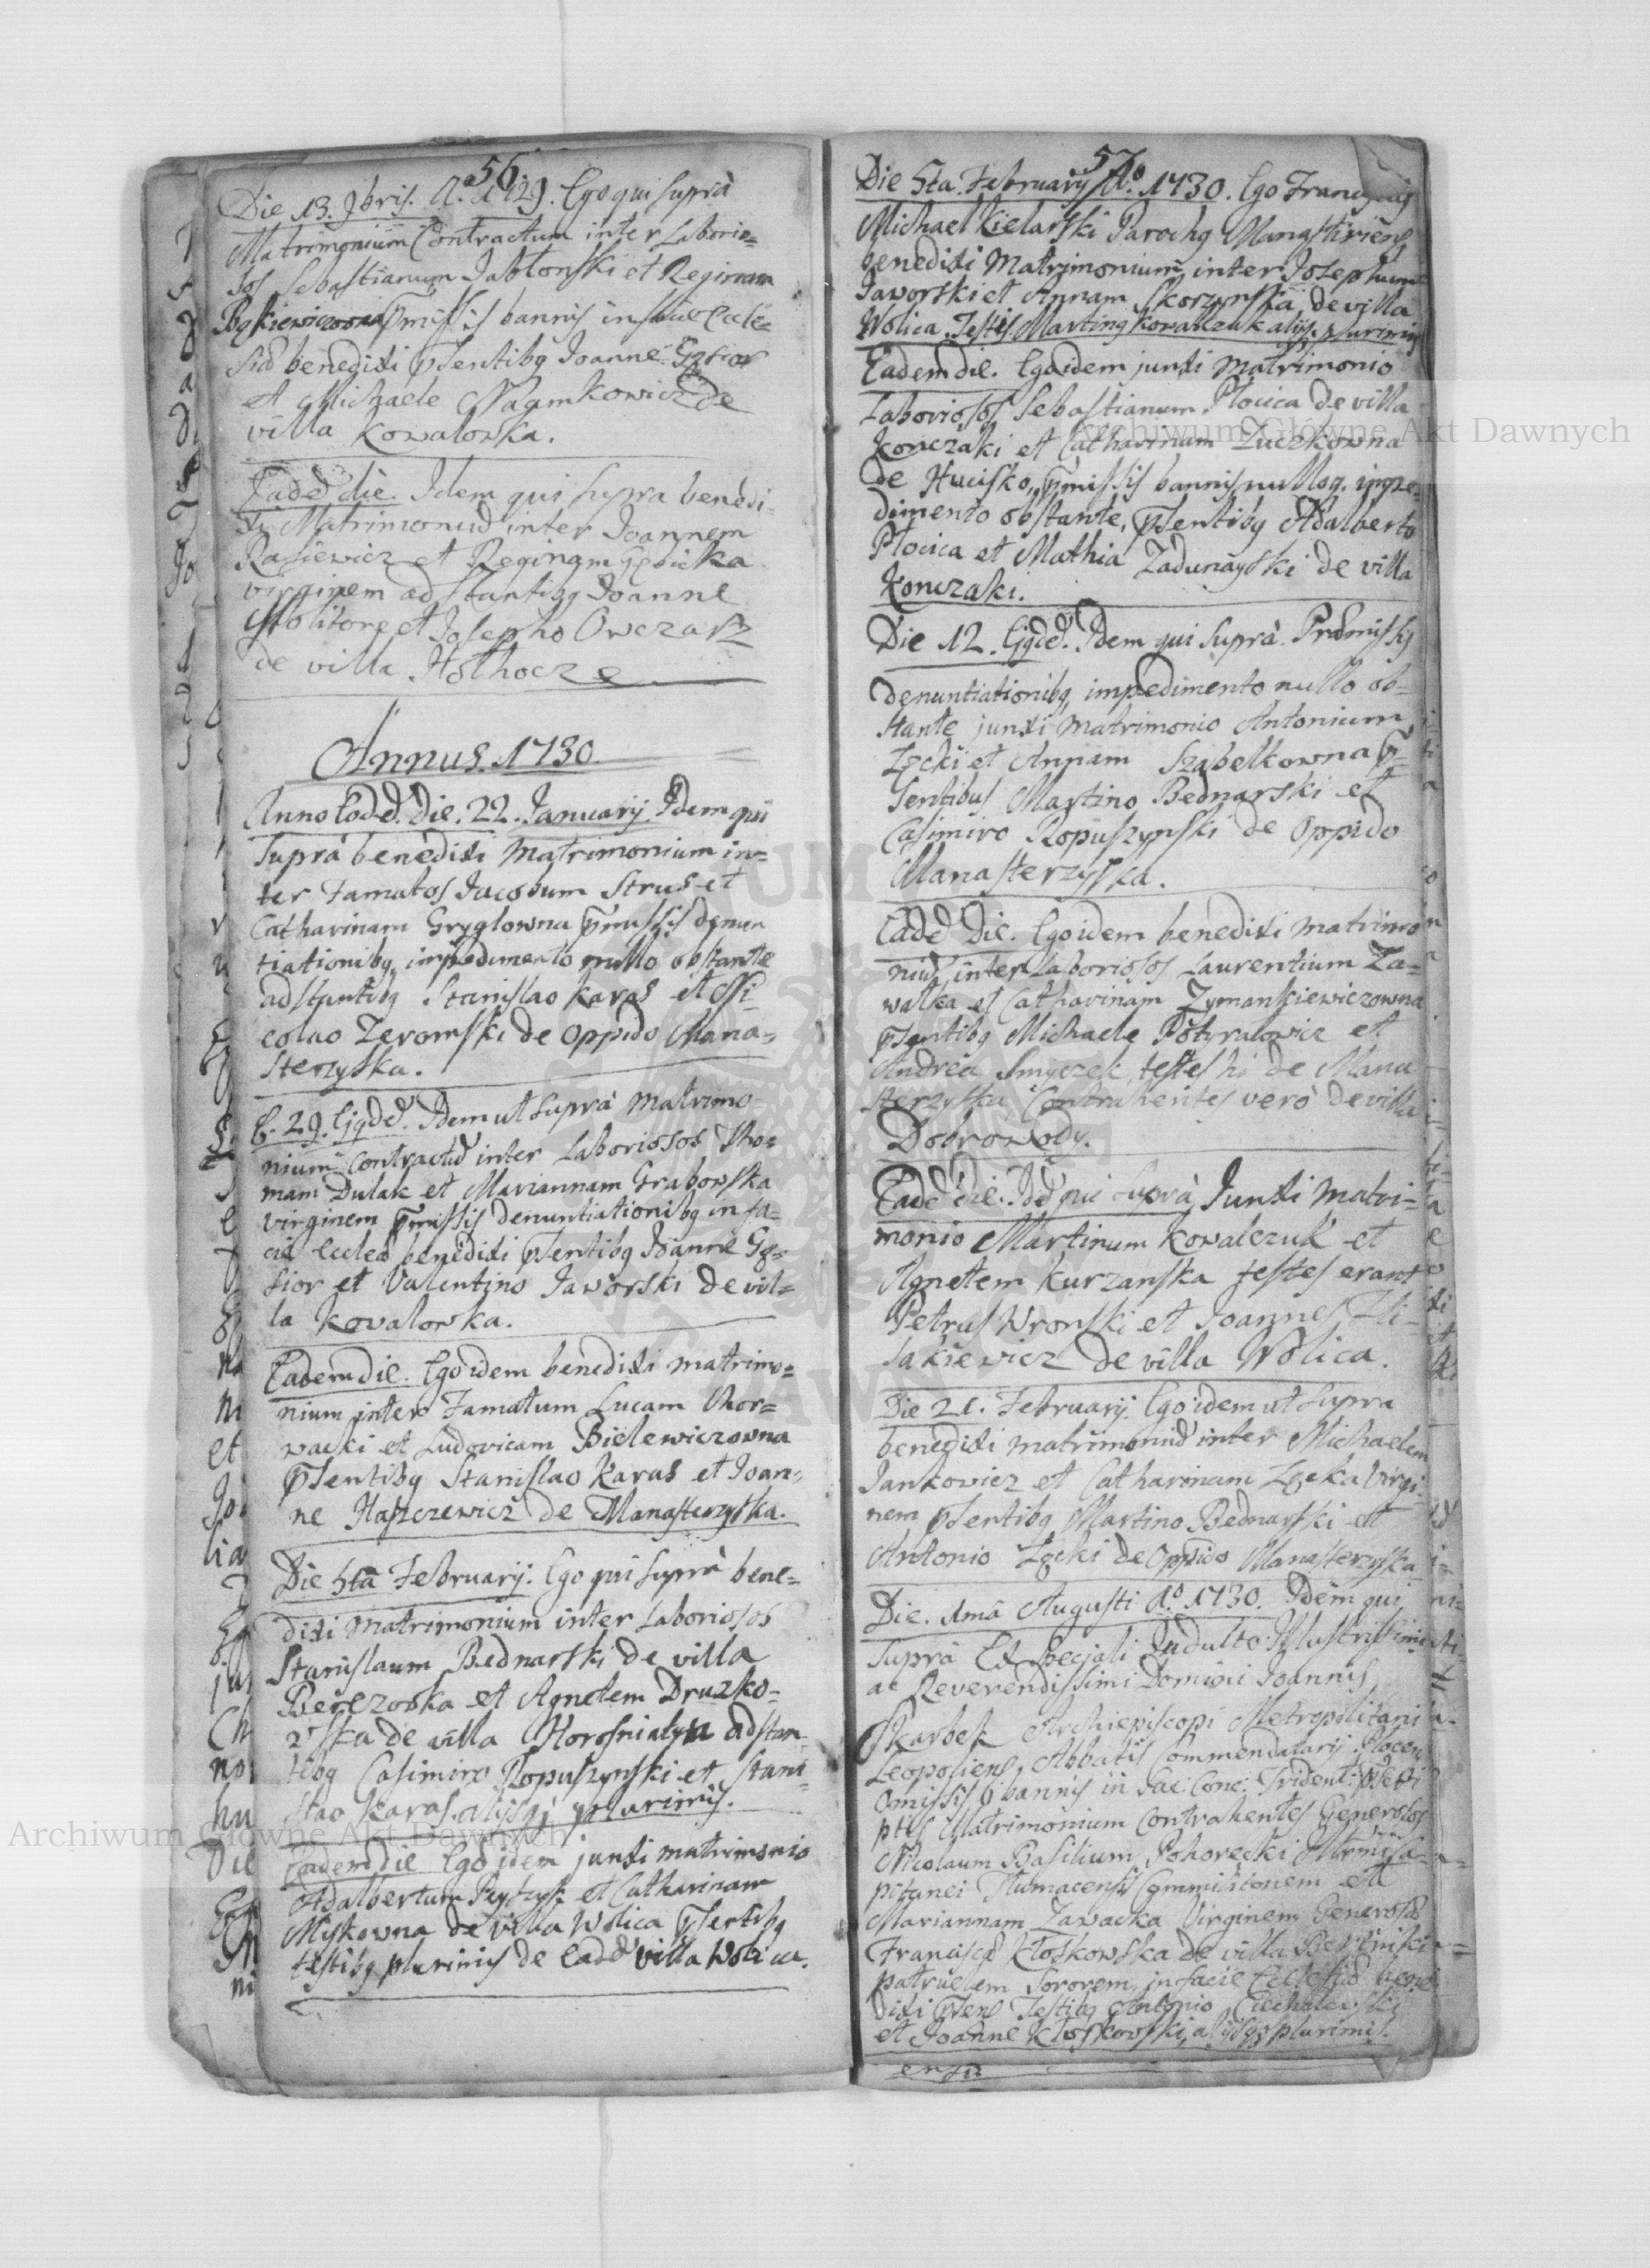 56
Die 13. 9bris. Ao. 1729. Ego qui suprà
Matrimonium Contractum inter Laborio=
sos Sebastianum Jabłonski et Reginam
p̄missis bannis in facie Eccle=
siæ benedixi p̄sentibq Joanne Gąsior
et Michaele de
villa Kowalowka.
Eadē die. Idem qui supra benedi=
xi Matrimoniū inter Joannem
Rasiewicz et Reginam
virginem adstantibq Joanne
Molitore et Josepho Owczarz
de villa Hołhocze
Annus 1730.
Anno Eodē. Die. 22. Januarij. Idem qui
suprà benedixi Matrimonium in=
ter Famatos Jacobum Strus et
Catharinam Gryglowna p̄missis denun
tiationibq impedimento nullo obstante
adstantibq Stanislao Karas et Ni=
colao Zeromski de oppido Mana=
sterzyska.
D. 29. Ejqdē. Idem ut suprà Matrimo=
nium Contractū inter Laboriosos Tho=
mam Dulak et Mariannam Grabowska
virginem p̄missis denuntiationibq in fa=
cie Eccleæ benedixi p̄sentibq Joanne Gą=
sior et Valentino Jaworski de vil=
la Kovalowka.
Eadem die. Ego idem benedixi matrimo=
nium inter Famatum Lucam Chor=
wacki et Ludovicam Bielewiczowna
p̄sentibq Stanislao Karas et Joan=
ne Haszczewicz de Manasterzyska.
Die 5tâ Februarij. Ego qui suprà bene=
dixi matrimonium inter Laboriosos
Stanislaum Bednarski de villa
Berezowka et Agnetem Druzko=
wska de villa adstan
tibq Casimiro Ropuszynski et Stani=
slao Karas. alijsq; plurimis.
Eadem die Ego idem junxi matrimonio
Adalbertum et Catharinam
Miskowna de villa Wolica p̄sentibq
testibq plurimis de Eadē villa Wolica.
57
Die 5ta. Februarij Ao. 1730. Ego Franciscq
Michael Kielarski Parochq Manastiriens
benedixi Matrimonium inter Josephum
Jaworski et Annam Skorzynska de villa
Wolica. Testes Martinq Kowalczuk alijsq plurimis
Eadem die. Ego idem junxi Matrimonio
Laboriosos Sebastianum Płocica de villa
Konczaki et Catharinam Zuczkowna
de Hucisko, p̄missis bannis nulloq. impe=
dimento obstante, p̄sentibq Adalberto
Płocica et Mathia Zadunayski de villa
Konczaki.
Die 12. Ejqdē. Idem qui suprà. Præmissis
denuntiationibq, impedimento nullo ob=
stante junxi matrimonio Antonium
Łącki et Annam Szabelkowna p̄=
sentibus Martino Bednarski et
Casimiro Ropuszynski de Oppido
Manasterzyska.
Eadē Die. Ego idem benedixi matrimo
niū inter Laboriosos Laurentium Za=
walka et Catharinam Zymankiewiczowna
p̄sentibq Michaele Potyralowicz et
Andrea Smyczek, testes hi de Mana
sterzyska, Contrahentes verò de villa
Dobrowody.
Eadē die. Idē qui suprà Junxi Matri=
monio Martinum Kowalczuk et
Agnetem Kurzanska testes erant
Petrus Wronski et Joannes
de villa Wolica.
Die 21. Februarij. Ego idem ut supra
benedixi matrimoniū inter Michaelem
Jankowicz et Catharinam Łącka Virgi=
nem p̄sentibq Martino Bednarski et
Antonio Łącki de Oppido Manasterzyska
Die. 1mâ Augusti Ao. 1730. Idem qui
suprà Ex speciali Indulto Illustrissimi
ac Reverendissimi Domini Joannis
Skarbek Archiepiscopi Metropolitani
Leopoliens. Abbatis Commendatarij Plocen
omissis bannis in Sac: Conc: Trident:
ptis Matrimonium Contrahentes Generosos
Nicolaum Basilium Pohorecki
pitanei Commilitonem et
Mariannam Zawacka Virginem Generosæ
Francisce Kłoskowska de villa
patruelem sororem, in facie Ecclesiæ bene
dixi p̄sens Testibq Antonio
et Joanne Kłoskowski, alijsq; plurimis.
Archiwum Główne Akt Dawnych
Archiwum Główne Akt Dawnych